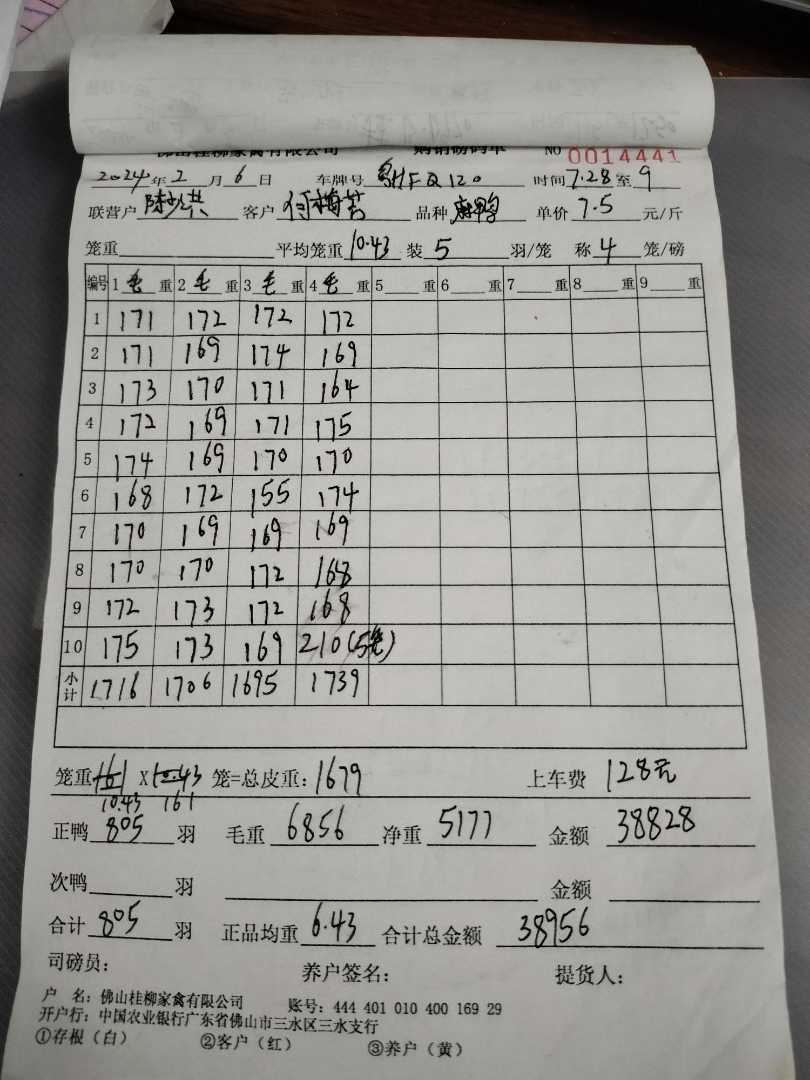 佛山桂柳家禽有限公司 购销磅码单 NO 0014441
2024年2月6日 车牌号 粤HFQ120 时间7.28至9
联营户 陈少洪 客户 何梅芳 品种 麻鸭 单价 7.5 元/斤
笼重 平均笼重 10.43 装 5 羽/笼 称 4 笼/磅
编号 1 毛 重 2 毛 重 3 毛 重 4 毛 重 5 重 6 重 7 重 8 重 9 重
1 171 172 172 172
2 171 169 174 169
3 173 170 171 164
4 172 169 171 175
5 174 169 170 170
6 168 172 155 174
7 170 169 169 169
8 170 170 172 168
9 172 173 172 168
10 175 173 169 210(5笼)
小计 1716 1706 1695 1739
笼重 161 X 10.43 笼=总皮重: 1679 上车费 128元
10.43 161
正鸭 805 羽 毛重 6856 净重 5177 金额 38828
次鸭 羽 金额
合计 805 羽 正品均重 6.43 合计总金额 38956
司磅员: 养户签名: 提货人:
户 名: 佛山桂柳家禽有限公司 账号: 444 401 010 400 169 29
开户行: 中国农业银行广东省佛山市三水区三水支行
①存根(白) ②客户(红) ③养户(黄)